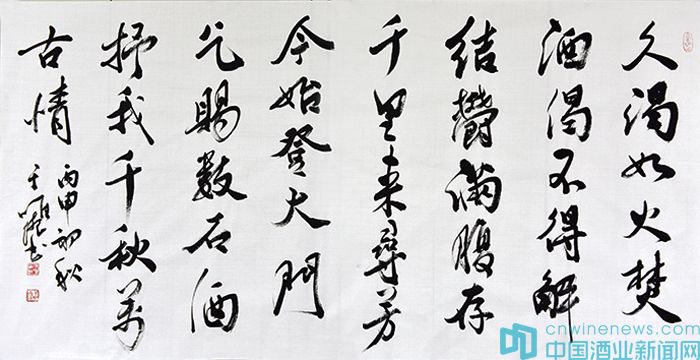 久渴如火焚
酒偈不得解
结鬱满腹存
千里来尋芳
今始登大門
乞赐数石酒
抒我千秋萬
古情
丙申初秋
书
cnwinenews.com
中国酒业新闻网